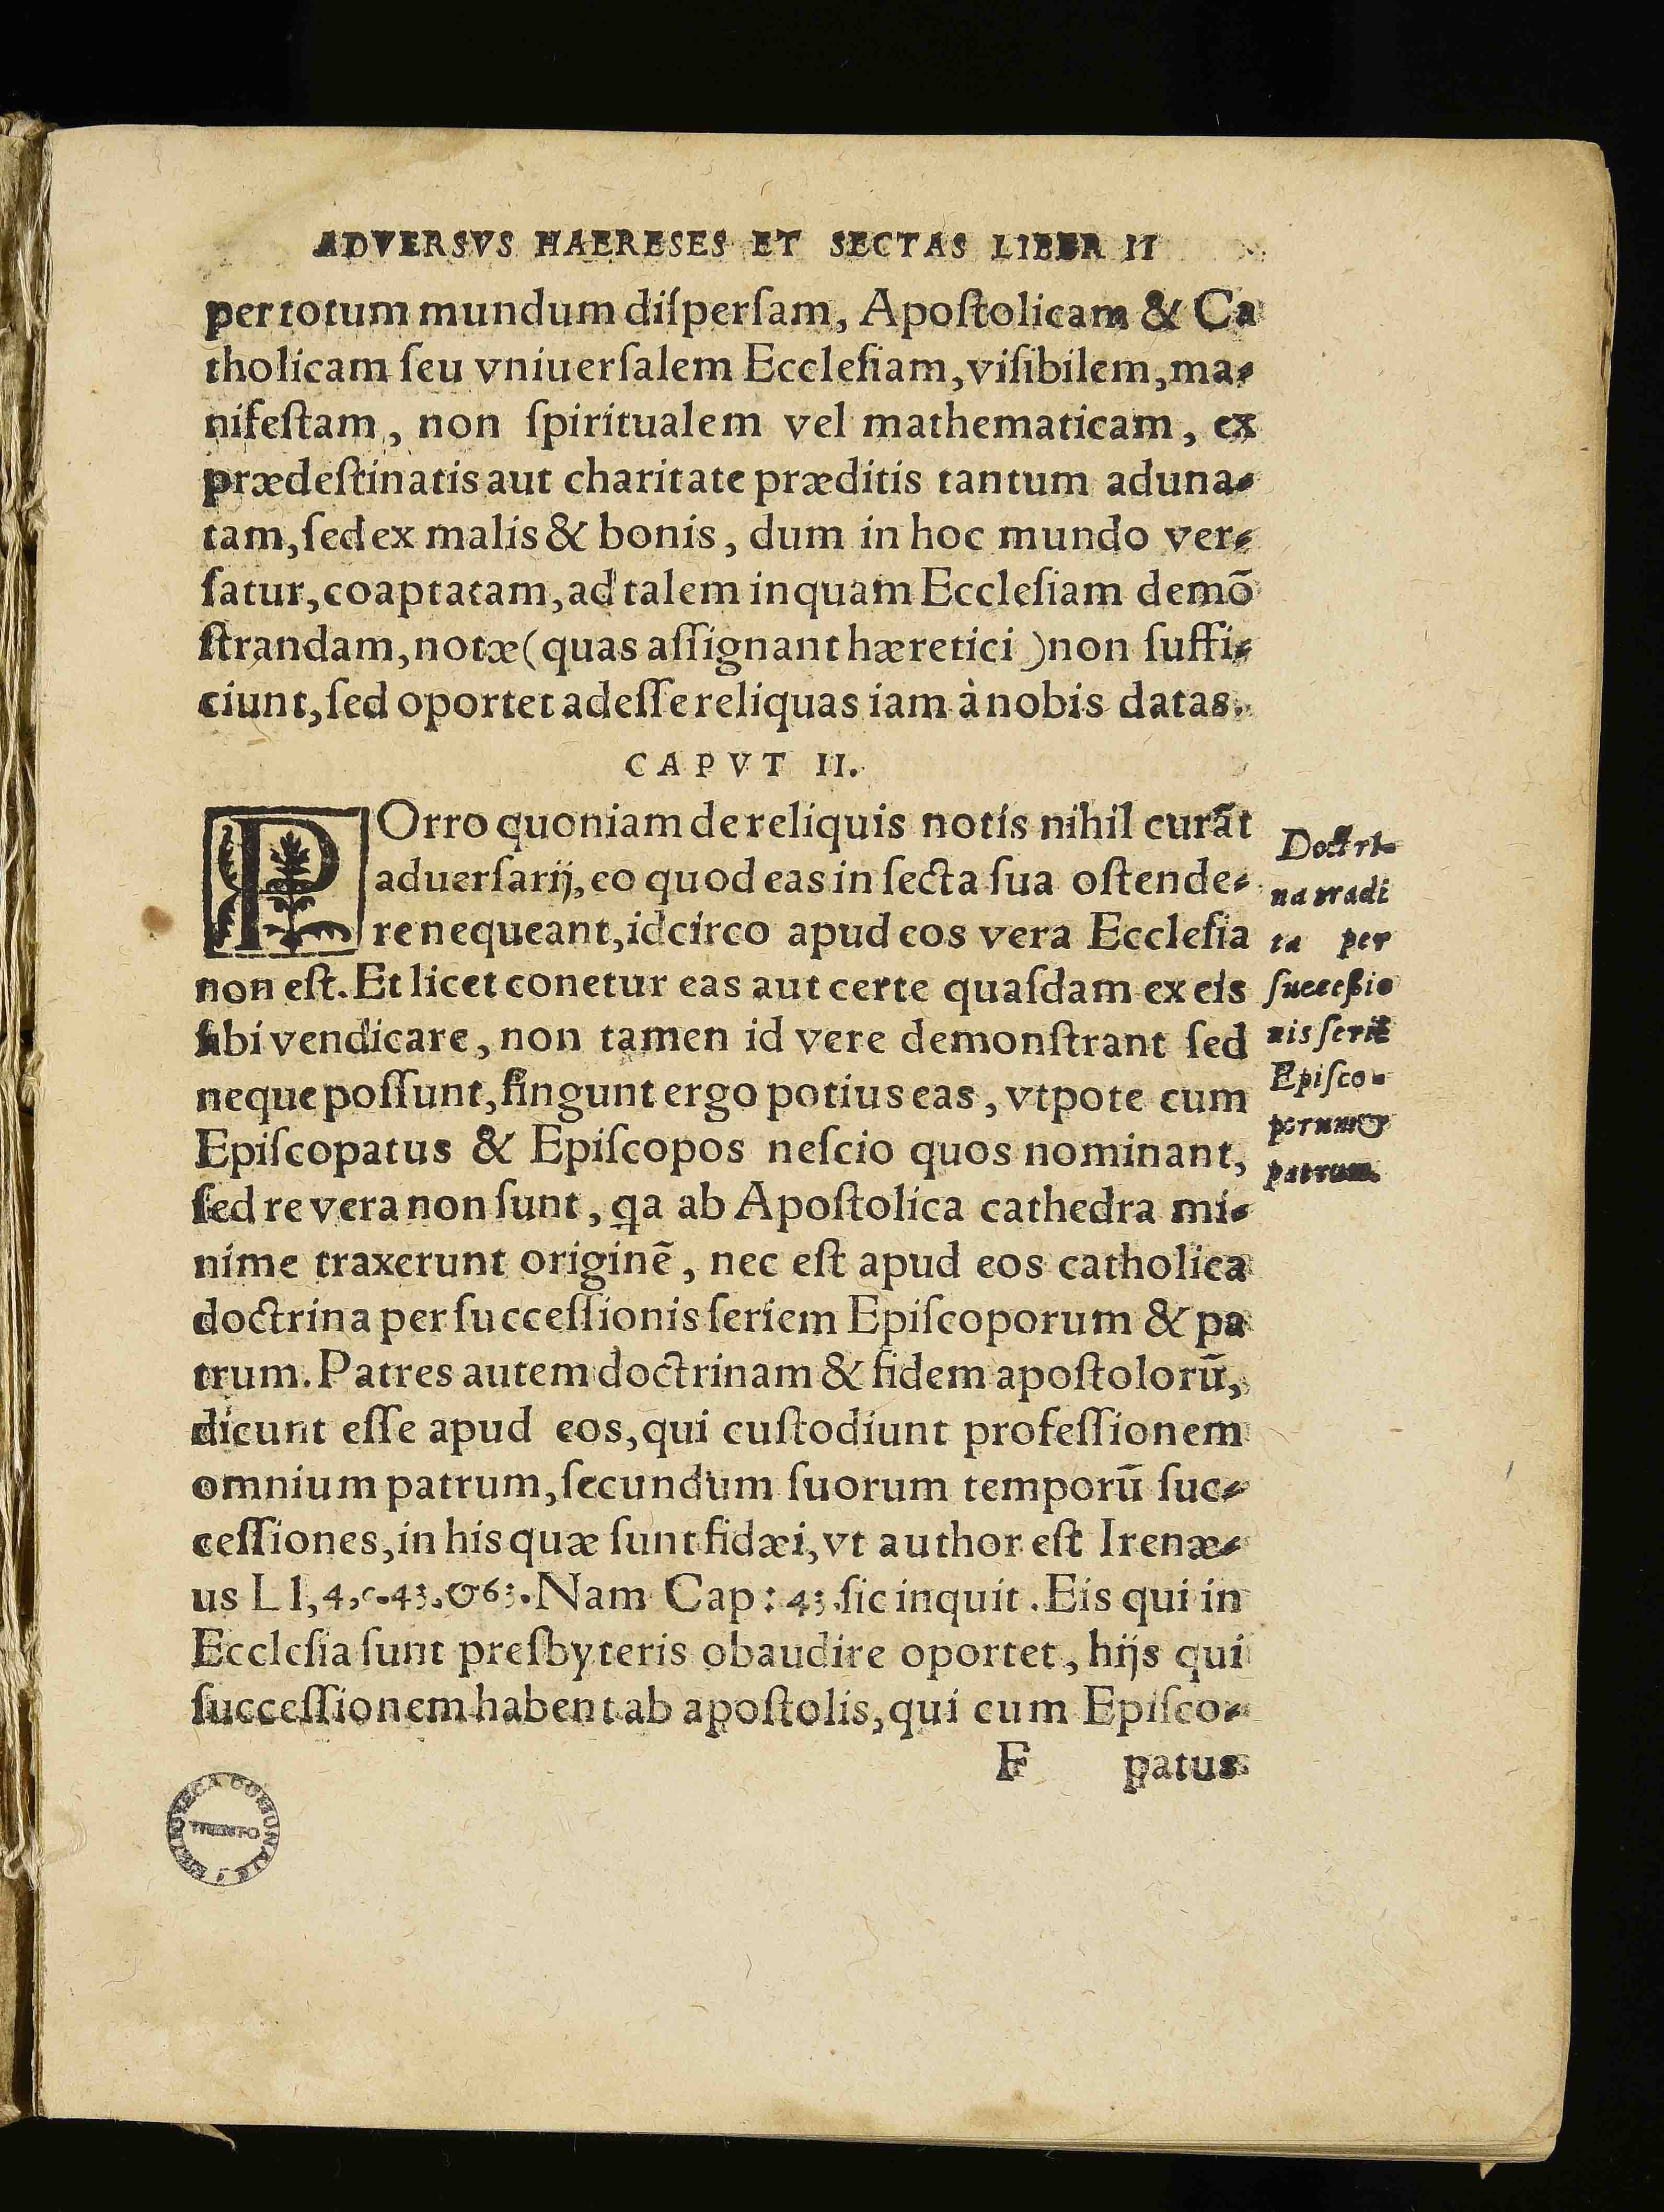 ADVERSVS HAERESES ET SECTAS LIBER II
per totum mundum diſperſam, Apoſtolicam & Ca
tholicam ſeu vniuerſalem Eccleſiam, viſibilem, ma-
nifeſtam, non ſpiritualem vel mathematicam, ex
prædeſtinatis aut charitate præditis tantum aduna-
tam, ſed ex malis & bonis, dum in hoc mundo ver-
ſatur, coaptatam, ad talem inquam Eccleſiam demō
ſtrandam, notæ (quas aſſignant hæretici) non ſuffi-
ciunt, ſed oportet adeſſe reliquas iam à nobis datas.
CAPVT II.
POrro quoniam de reliquis notis nihil curāt
aduerſarij, eo quod eas in ſecta ſua oſtende-
re nequeant, idcirco apud eos vera Eccleſia
non eſt. Et licet conetur eas aut certe quaſdam ex eis
ſibi vendicare, non tamen id vere demonſtrant ſed
neque poſſunt, fingunt ergo potius eas, vtpote cum
Epiſcopatus & Epiſcopos neſcio quos nominant,
ſed re vera non ſunt, ꝗa ab Apoſtolica cathedra mi-
nime traxerunt originē, nec eſt apud eos catholica
doctrina per ſucceſſionis ſeriem Epiſcoporum & pa
trum. Patres autem doctrinam & fidem apoſtolorū,
dicunt eſſe apud eos, qui cuſtodiunt profeſſionem
omnium patrum, ſecundum ſuorum temporū ſuc-
ceſſiones, in his quæ ſunt fidæi, vt author eſt Irenæ-
us L l, 4, c. 43. & 63. Nam Cap: 43. ſic inquit. Eis qui in
Eccleſia ſunt preſbyteris obaudire oportet, hijs qui
ſucceſſionem habent ab apoſtolis, qui cum Epiſco-
F patus
Doctri-
na tradi
ta per
ſucceßio
nis ſeriē
Epiſco-
porum &
patrum.
BIBLIOTECA COMUNALE
TRENTO